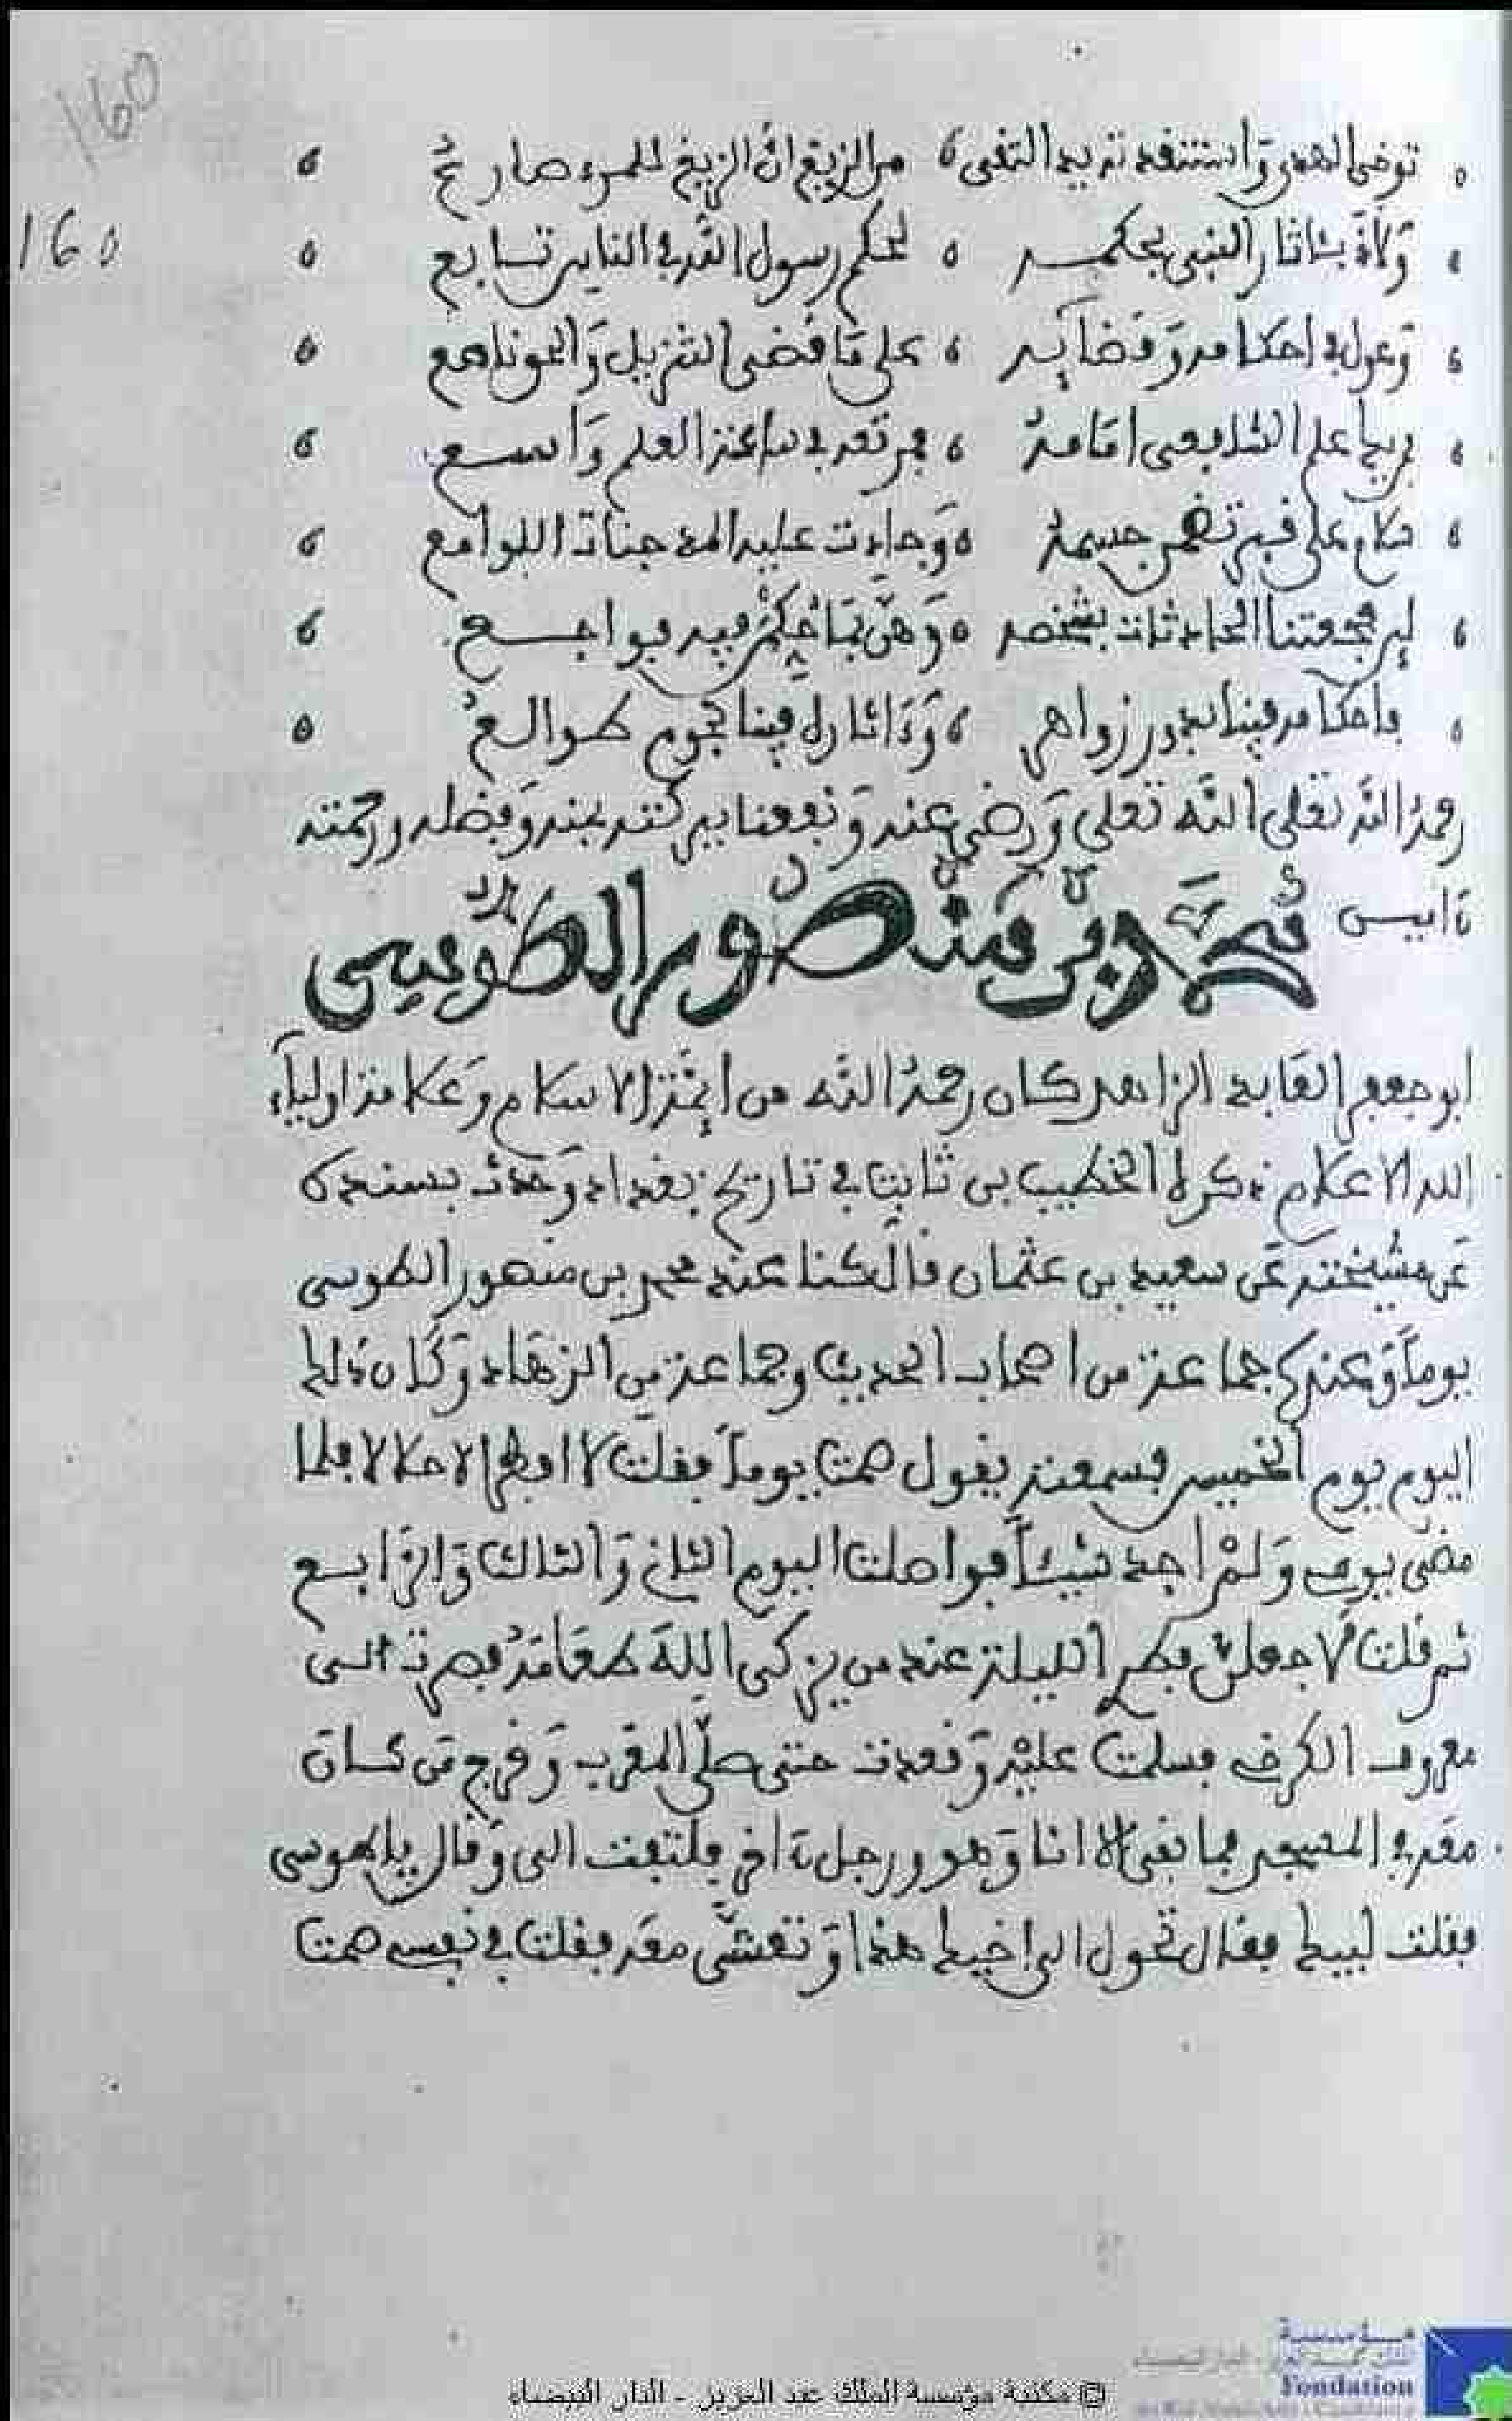 160
160
توخى الهدى واستنفدته يد التقى من الزيغ ان الزيغ للمرء صارع
ولاذ بآثار النبي بحكمه لحكم رسول الله في الناس تابع
وعول في احكامه وقضايه على ما قضى التنزيل والحق ناصع
فمن يك علم الشافعي امامه فمرتعه في ساحة العلم واسع
سلام على قبر تضمن جسمه وجادت عليه المدجنات اللوامع
لين فجعتنا الحادثات بشخصه وهن بما حكمن فيه فواجع
فاحكامه فينا بدور زواهر وءاثاره فينا نجوم طوالع
رحمة الله تعلى الله تعلى ورضي عنه ونفعنا ببركته بمنه وفضله ورحمته
ءاميـن محمد بن منصور الطوسي
ابو جعفر العابد الزاهد كان رحمة الله من ايمة الاسلام وعلامة اولياء
الله الاعلام ذكره الخطيب بن ثابت في تاريخ بغداد وحدث بسنده
عن مشيخته عن سعيد بن عثمان قال كنا عند محمد بن منصور الطوسي
يوما وعنده جماعة من اصحاب الحديث وجماعة من الزهاد وكان ذلك
اليوم يوم الخميس فسمعته يقول صمت يوما فقلت لا افطر الا حلالا فلما
مضى يومي ولم اجد شيئا فواصلت اليوم الثاني والثالث والرابع
ثم قلت لاجعلن فطر الليلة عند من يزكي الله طعامه فصرت الى
معروف الكرخي فسلمت عليه وقعدت حتى صلى المغرب وخرج من كان
معه في المسجد فما بقي الا انا وهو ورجل ءاخر فالتفت الي وقال يا طوسي
فقلت لبيك فقال تحول الى اخيك هذا وتعشى معه فقلت في نفسي صمت
مؤسسة
Fondation
© مكتبة مؤسسة الملك عبد العزيز - الدار البيضاء